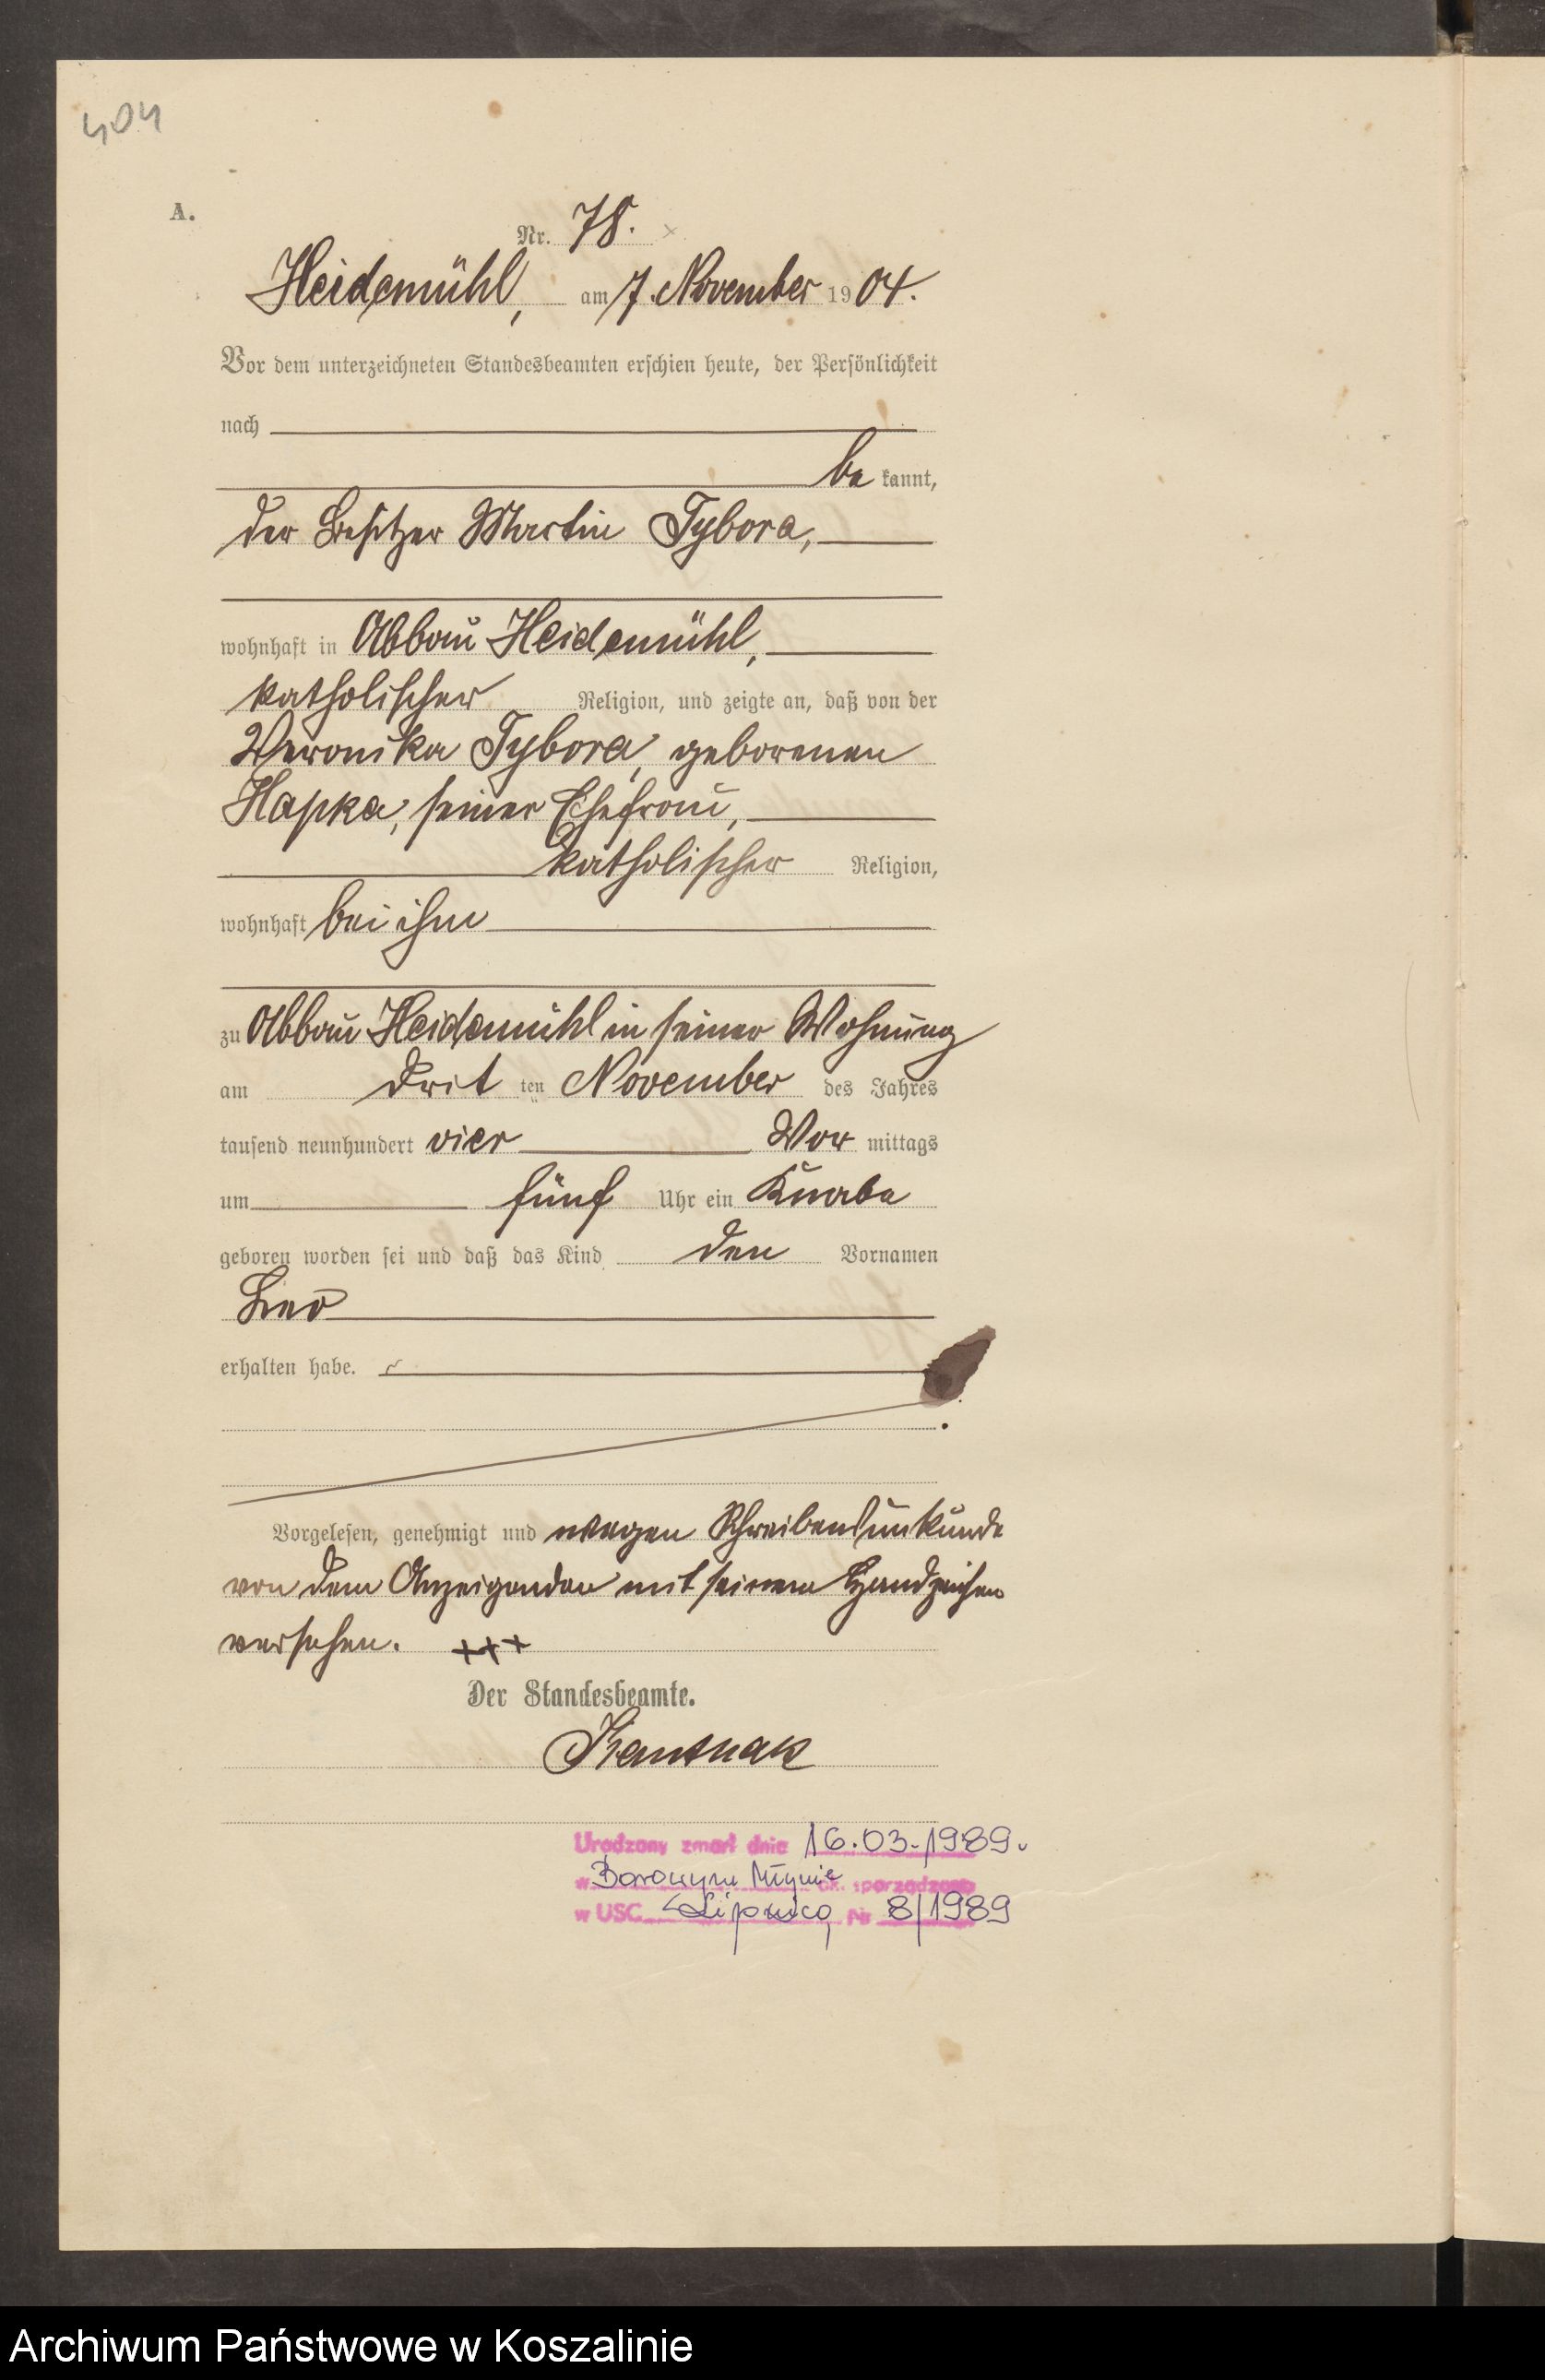 404
A.
Nr. 78.
Heidemühl, am 7. November 1904.
Vor dem unterzeichneten Standesbeamten erschien heute, der Persönlichkeit
nach
be kannt,
der Besitzer Martin Tybora,
wohnhaft in Abbau Heidemühl,
katholischer Religion, und zeigte an, daß von der
Weronika Tybora, geborenen
Hapka, seiner Ehefrau,
katholischer Religion,
wohnhaft bei ihm
zu Abbau Heidemühl in seiner Wohnung
am dritten November des Jahres
tausend neunhundert vier Vor mittags
um fünf Uhr ein Knabe
geboren worden sei und daß das Kind den Vornamen
Leo
erhalten habe.
Vorgelesen, genehmigt und wegen Schreibensunkunde
von dem Anzeigenden mit seinem Handzeichen
versehen. +++
Der Standesbeamte.
Urodzony zmarł dnia 16.03.1989.
w Borowym Młynie ak. sporządzono
w USC Lipnica, Nr 8/1989
Archiwum Państwowe w Koszalinie